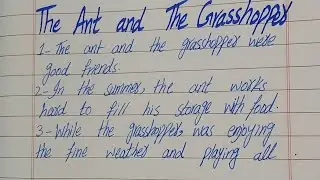 The Ant and The Grasshopper
1- The ant and the grasshopper were
good friends.
2- In the summer, the ant works
hard to fill his storage with food.
3- While the grasshopper, was enjoying
the fine weather and playing all.